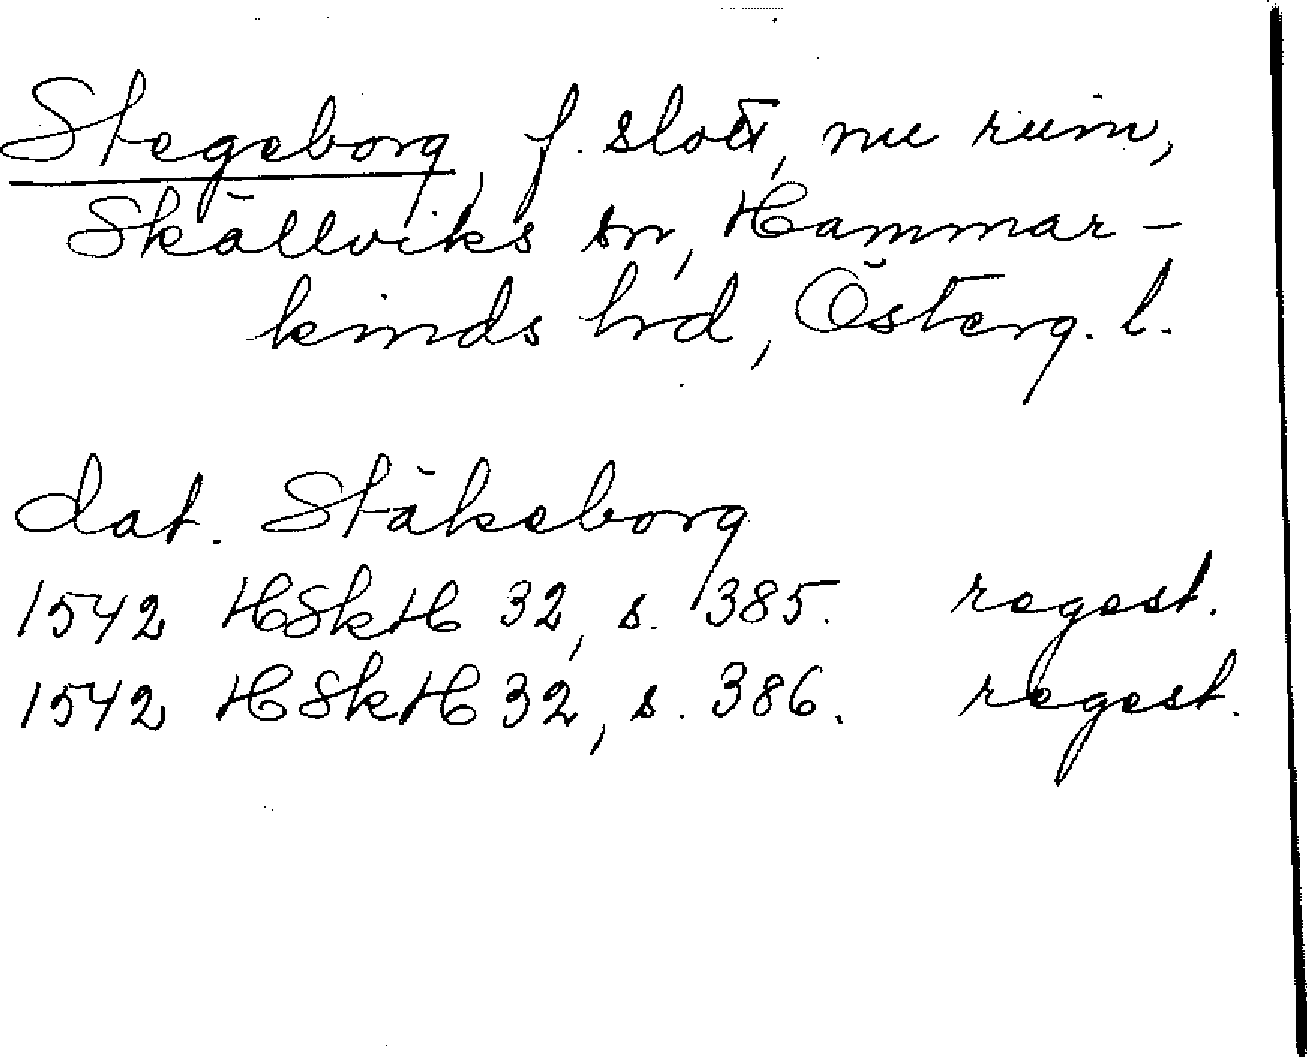 Stegeborg, f. slott, nu ruin,
Skällviks sn, Hammar-
kinds hrd, Österg. l.
dat. Stäkeborg
1542 HSkH 32, s. 385. regest.
1542 HSkH 32, s. 386. regest.